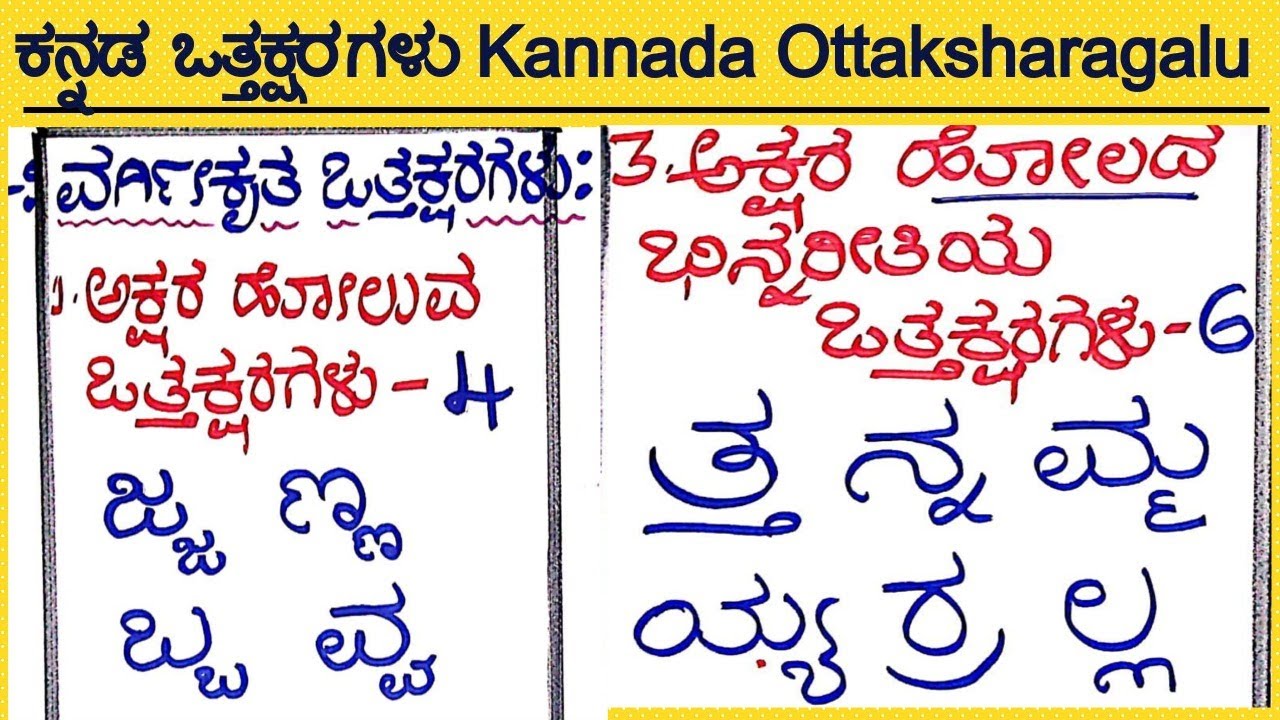 ಕನ್ನಡ ಒತ್ತಕ್ಷರಗಳು Kannada Ottaksharagalu
ವರ್ಗೀಕೃತ ಒತ್ತಕ್ಷರಗಳು:
1. ಅಕ್ಷರ ಹೋಲುವ
ಒತ್ತಕ್ಷರಗಳು - 4
ಜ್ಜ ಣ್ಣ
ಬ್ಬ ವ್ವ
3. ಅಕ್ಷರ ಹೋಲದ
ಭಿನ್ನರೀತಿಯ
ಒತ್ತಕ್ಷರಗಳು - 6
ತ್ತ ನ್ನ ಮ್ಮ
ಯ್ಯ ರ್‍ರ ಲ್ಲ